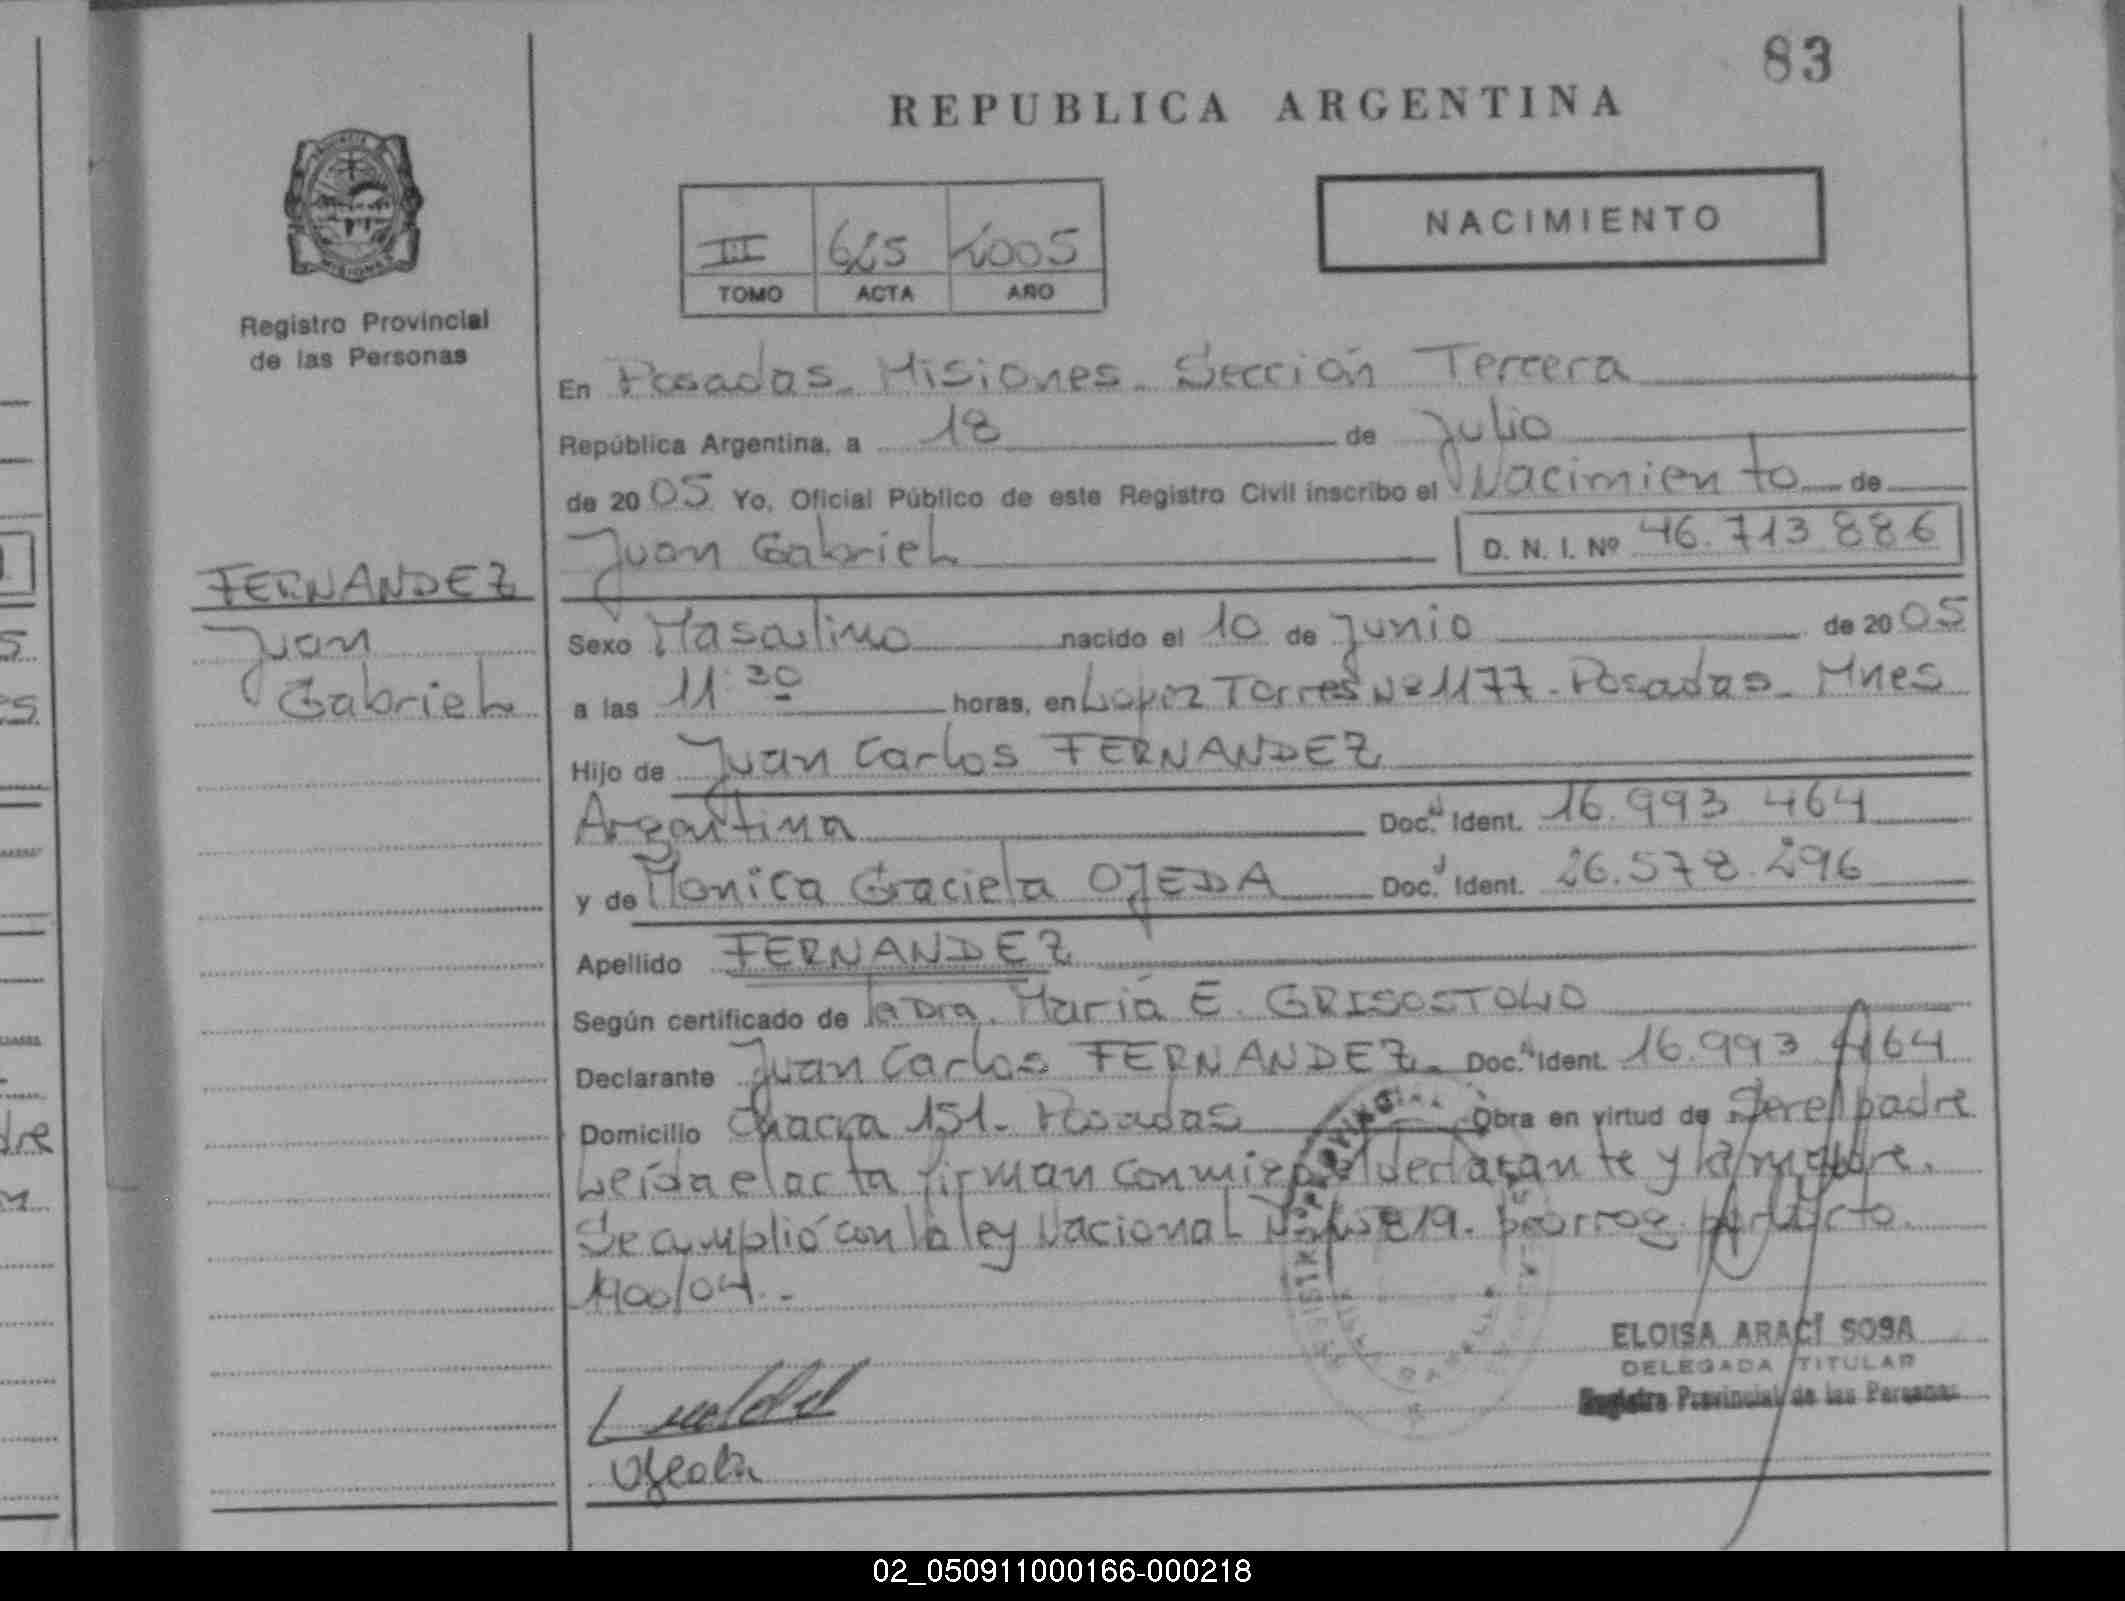 83
REPUBLICA ARGENTINA
NACIMIENTO
III 625 2005
TOMO ACTA AÑO
MISIONES
Registro Provincial
de las Personas
En Posadas - Misiones - Sección Tercera
República Argentina, a 18 de Julio
de 2005 Yo, Oficial Público de este Registro Civil inscribo el Nacimiento de
Juan Gabriel D. N. I. Nº 46.713.886
FERNANDEZ
Juan
Gabriel
Sexo Masculino nacido el 10 de Junio de 2005
a las 11:30 horas, en Lopez Torres Nº 1177 - Posadas - Mnes
Hijo de Juan Carlos FERNANDEZ
Argentina Doc. Ident. 16.993.464
y de Monica Graciela OJEDA Doc. Ident. 26.578.296
Apellido FERNANDEZ
Según certificado de la Dra. María E.
Declarante Juan Carlos FERNANDEZ - Doc. Ident. 16.993.464
Domicilio Chacra 151 - Posadas Obra en virtud de Ser el padre
Leída el acta firman conmigo el declarante y la madre.
Se cumplió con la ley Nacional prorrog. por
1900/04.-
ELOISA ARACÍ SOSA
DELEGADA TITULAR
Registro Provincial de las Personas
Ojeda
02_050911000166-000218